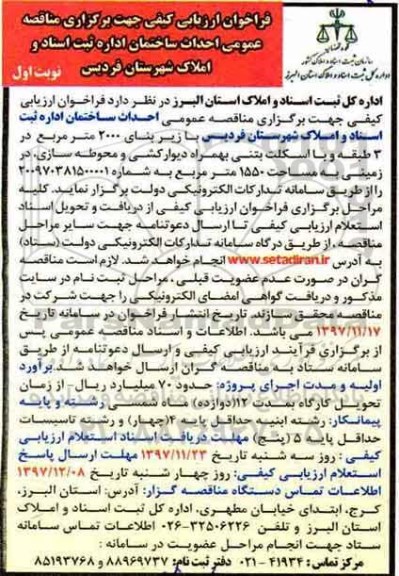 فراخوان ارزیابی کیفی جهت برگزاری مناقصه
عمومی احداث ساختمان اداره ثبت اسناد و
املاک شهرستان فردیس
نوبت اول
قوه قضائیه
سازمان ثبت اسناد و املاک کشور
اداره کل ثبت اسناد و املاک استان البرز
اداره کل ثبت اسناد و املاک استان البرز در نظر دارد فراخوان ارزیابی
کیفی جهت برگزاری مناقصه عمومی احداث ساختمان اداره ثبت
اسناد و املاک شهرستان فردیس با زیر بنای ۲۰۰۰ متر مربع در
۳ طبقه و با اسکلت بتنی بهمراه دیوارکشی و محوطه سازی، در
زمینی به مساحت ۱۵۵۰ متر مربع به شماره ۲۰۰۹۷۰۳۸۱۵۰۰۰۰۱
را از طریق سامانه تدارکات الکترونیکی دولت برگزار نماید. کلیه
مراحل برگزاری فراخوان ارزیابی کیفی از دریافت و تحویل اسناد
استعلام ارزیابی کیفی تا ارسال دعوتنامه جهت سایر مراحل
مناقصه، از طریق درگاه سامانه تدارکات الکترونیکی دولت (ستاد)
به آدرس www.setadiran.ir انجام خواهد شد. لازم است مناقصه
گران در صورت عدم عضویت قبلی، مراحل ثبت نام در سایت
مذکور و دریافت گواهی امضای الکترونیکی را جهت شرکت در
مناقصه محقق سازند. تاریخ انتشار فراخوان در سامانه تاریخ
۱۳۹۷/۱۱/۱۷ می باشد. اطلاعات و اسناد مناقصه عمومی پس
از برگزاری فرآیند ارزیابی کیفی و ارسال دعوتنامه از طریق
سامانه ستاد به مناقصه گران ارسال خواهد شد. برآورد
اولیه و مدت اجرای پروژه: حدود ۷۰ میلیارد ریال- از زمان
تحویل کارگاه بمدت ۱۲(دوازده) ماه شمسی رشته و پایه
پیمانکار: رشته ابنیه حداقل پایه ۴(چهار) و رشته تاسیسات
حداقل پایه ۵ (پنج) مهلت دریافت اسناد استعلام ارزیابی
کیفی: روز سه شنبه تاریخ ۱۳۹۷/۱۱/۲۳ مهلت ارسال پاسخ
استعلام ارزیابی کیفی: روز چهار شنبه تاریخ ۱۳۹۷/۱۲/۰۸
اطلاعات تماس دستگاه مناقصه گزار: آدرس: استان البرز،
کرج، ابتدای خیابان مطهری، اداره کل ثبت اسناد و املاک
استان البرز و تلفن ۳۲۵۰۶۲۲۶-۰۲۶ اطلاعات تماس سامانه
ستاد جهت انجام مراحل عضویت در سامانه:
مرکز تماس: ۴۱۹۳۴-۰۲۱ دفتر ثبت نام: ۸۸۹۶۹۷۳۷ و ۸۵۱۹۳۷۶۸